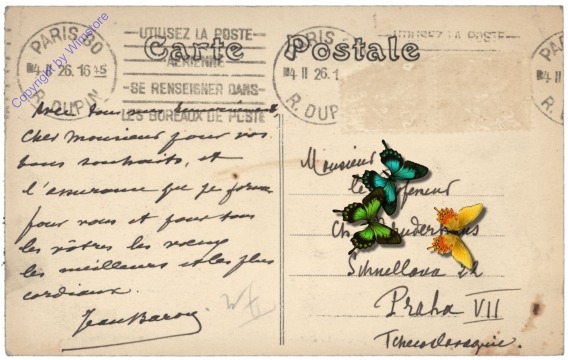 PARIS 80
4 II 26. 16 45
R. DUPIN
UTILISEZ LA POSTE
AÉRIENNE
SE RENSEIGNER DANS
LES BUREAUX DE POSTE
PARIS
4 II 26. 1
R. DUP
UTILISEZ LA POSTE
4 II
Copyright by Winstore
Carte Postale
Avec tous mes remerciements,
cher Monsieur pour vos
bons souhaits, et
l'assurance que je forme
pour vous et pour tous
les vôtres les vœux
les meilleurs et les plus
cordiaux.
Jean
Monsieur
le
Ch
Schnellova
Praha VII
Tchécoslovaquie.